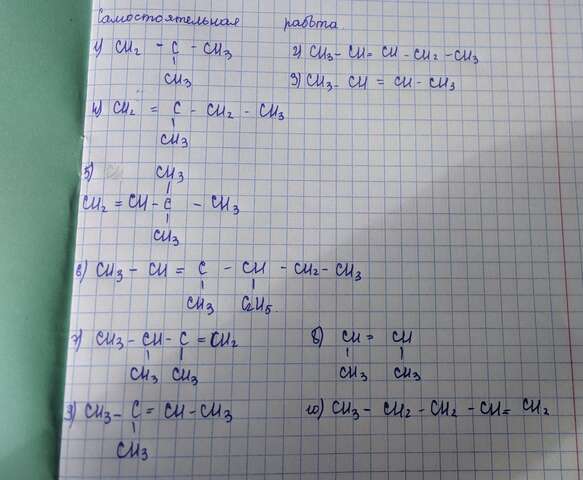 Самостоятельная работа.
1) CH2 - C - CH3
CH3
2) CH3 - CH = CH - CH2 - CH3
3) CH3 - CH = CH - CH3
4) CH2 = C - CH2 - CH3
CH3
5)
CH3
CH2 = CH - C - CH3
CH3
6) CH3 - CH = C - CH - CH2 - CH3
CH3 C2H5.
7) CH3 - CH - C = CH2
CH3 CH3
8) CH = CH
CH3 CH3
9) CH3 - C = CH - CH3
CH3
10) CH3 - CH2 - CH2 - CH = CH2